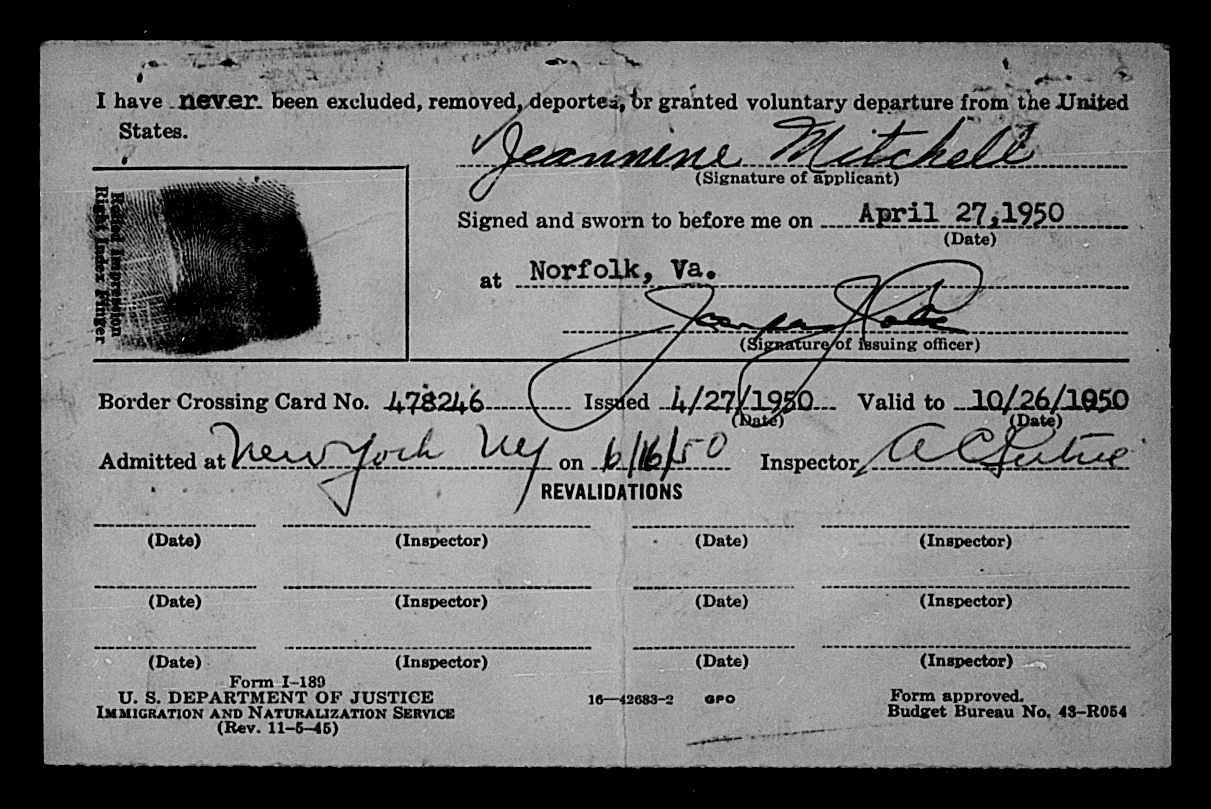 I have never been excluded, removed, deported, or granted voluntary departure from the United
States.
Jeannine Mitchell
(Signature of applicant)
Rolled Impression
Right Index Finger
Signed and sworn to before me on April 27,1950
(Date)
at Norfolk, Va.
(Signature of issuing officer)
Border Crossing Card No. 478246 Issued 4/27/1950 Valid to 10/26/1950
(Date) (Date)
Admitted at New York NY on 6/16/50 Inspector A C
REVALIDATIONS
(Date) (Inspector) (Date) (Inspector)
(Date) (Inspector) (Date) (Inspector)
(Date) (Inspector) (Date) (Inspector)
Form I-189
U. S. DEPARTMENT OF JUSTICE
IMMIGRATION AND NATURALIZATION SERVICE
(Rev. 11-5-45)
16—42683-2 GPO
Form approved.
Budget Bureau No. 43-R054